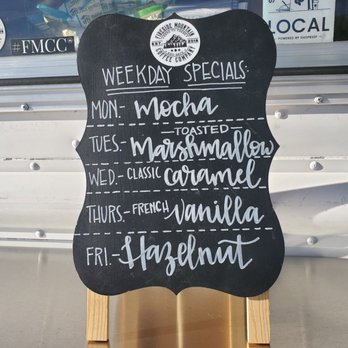 #FMCC
FIRESIDE MOUNTAIN
COFFEE COMPANY
LOCAL
WEEKDAY SPECIALS:
MON.- Mocha
TUES.- TOASTED Marshmallow
WED.- CLASSIC Caramel
THURS.- FRENCH Vanilla
FRI.- Hazelnut